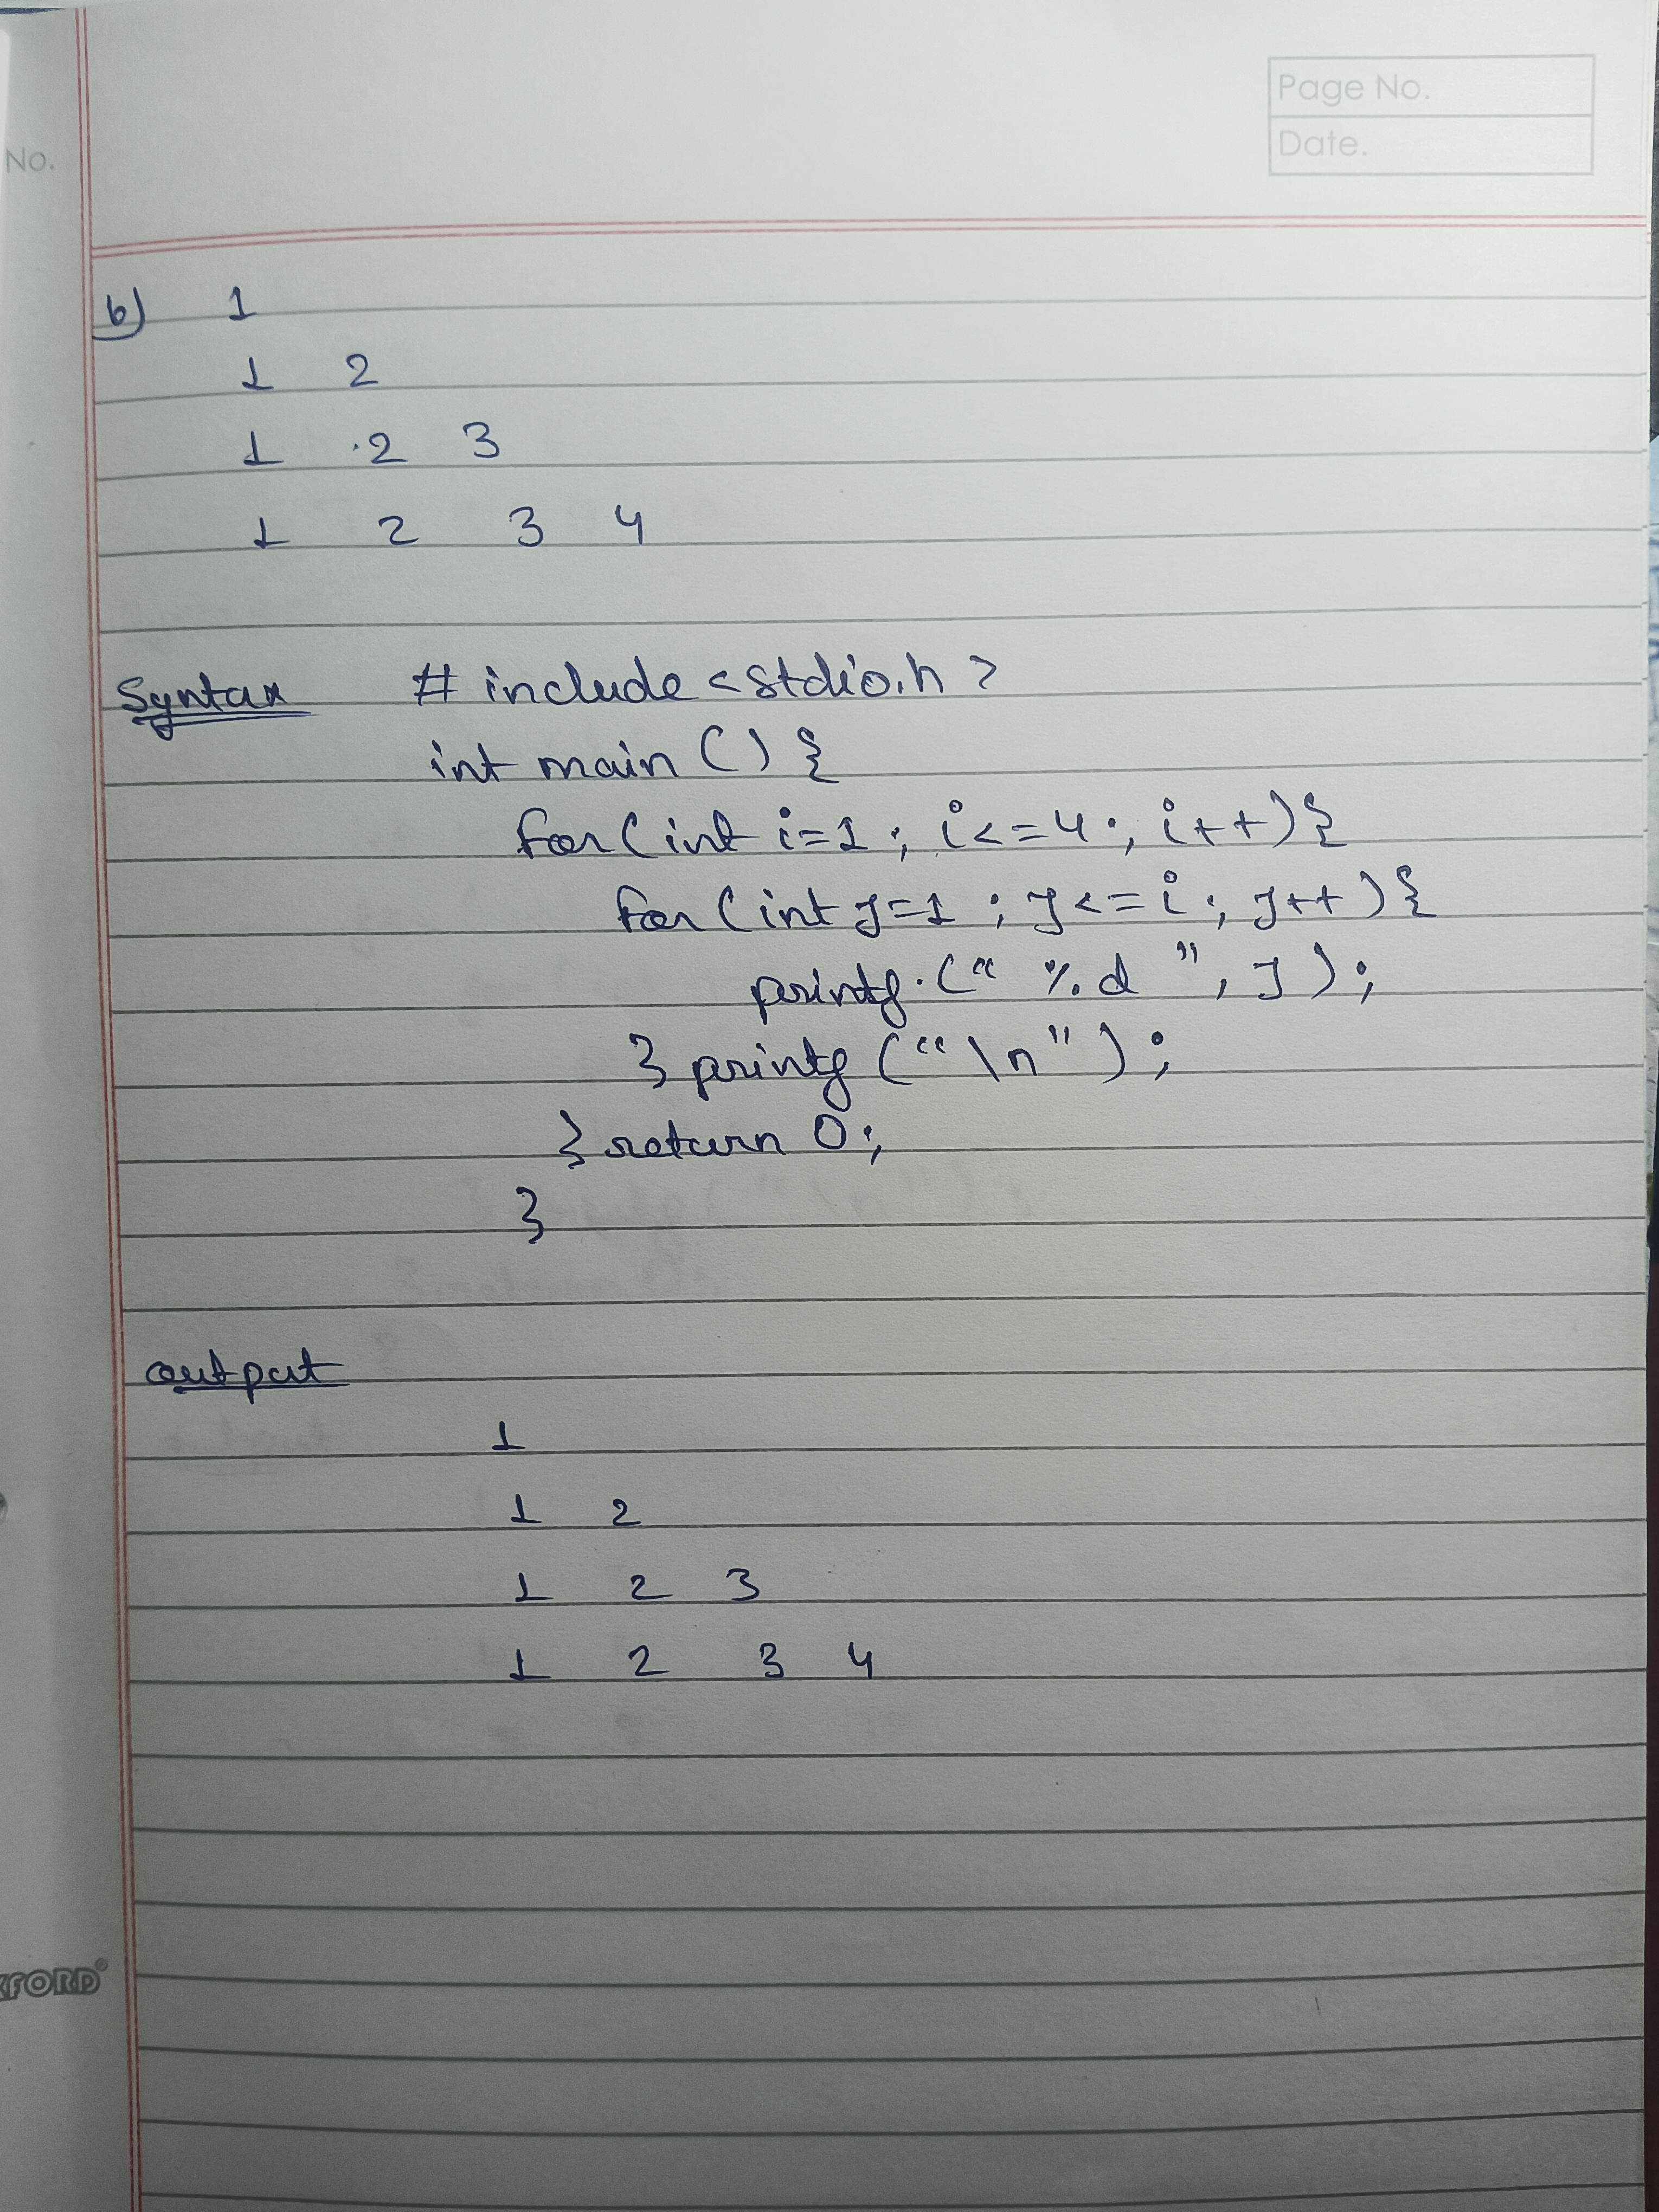 Page No.
Date.
No.
b) 1
1 2
1 2 3
1 2 3 4
Syntax # include <stdio.h>
int main () {
for (int i=1 ; i<=4 ; i++) {
for (int j=1 ; j<=i ; j++) {
printf (" %d ", j) ;
} printf ("\n") ;
} return 0;
}
output
1
1 2
1 2 3
1 2 3 4
XFORD®